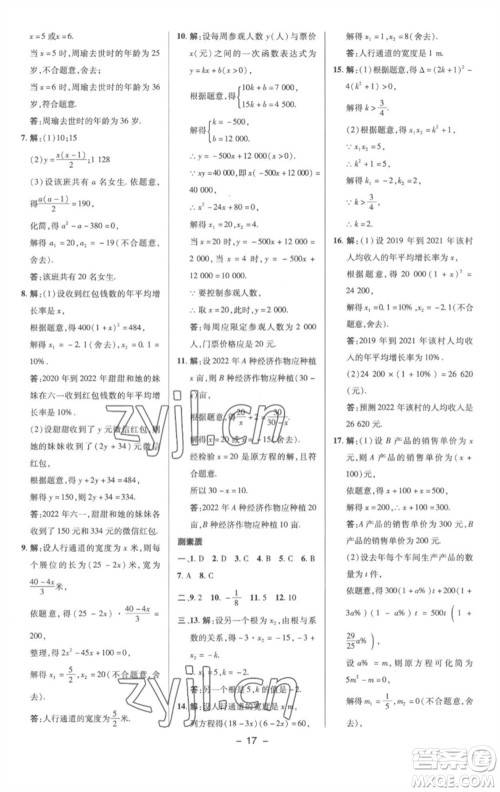 x=5 或 x=6.
当 x=5 时,周瑜去世时的年龄为 25
岁,不合题意,舍去;
当 x=6 时,周瑜去世时的年龄为 36
岁,符合题意.
答:周瑜去世时的年龄为 36 岁.
7. 解:(1)10;15
(2)y=x(x-1)/2;1 128
(3)设该班共有 a 名女生. 依题意,
得 a(a-1)/2=190,
化简,得 a²-a-380=0,
解得 a₁=20,a₂=-19(舍去).
答:该班共有 20 名女生.
8. 解:(1)设收到红包钱数的年平均增
长率是 x,
根据题意,得 400(1+x)²=484,
解得 x₁=0.1=10%,x₂=-2.1
(舍去).
答:2020 到 2022 年甜甜和她的妹
妹在六一收到红包钱数的年平均增
长率是 10%.
(2)设甜甜收到微信红包 y 元,则
她的妹妹收到(2y+34)元,
根据题意,得 y+2y+34=484,
解得 y=150,则 2y+34=334.
答:2022 年六一,甜甜和她的妹妹
各收到 150 元和 334 元的微信红包.
9. 解:设人行通道的宽度是 x 米,则每
个展位的长为(25-2x)米,宽为
(40-4x)/3 米,
依题意,得(25-2x)·(40-4x)/3=200,
整理,得 2x²-45x+100=0,
解得 x₁=5/2,x₂=20(不合题意,
舍去).
答:人行通道的宽度为 5/2 米.
10. 解:设每周参观人数 y(人)与票价
x(元)之间的一次函数表达式为
y=kx+b(x>0),
根据题意,得{10k+b=7 000,
15k+b=4 500,
解得{k=-500,
b=12 000.
∴y=-500x+12 000.
∵xy=40 000,即 x(-500x+
12 000)=40 000,
∴x²-24x+80=0,
解得 x₁=20,x₂=4.
当 x=20 时,-500x+12 000=2 000;
当 x=4 时,-500x+12 000=
10 000.
∵要控制参观人数,
∴取 x=20.
答:每周应限定参观人数是 2 000
人,门票价格应是 20 元.
11. 解:设 2022 年 A 种经济作物应种植
x 亩,则 B 种经济作物应种植(30-
x)亩,
根据题意,得 20/x+2=30/(30-x),
解得 x=20 或 x=-15(舍去).
经检验 x=20 是原方程的解,且符
合题意.
∴30-x=10.
答:2022 年 A 种经济作物应种植 20
亩,B 种经济作物应种植 10 亩.
测素质
一、1. D 2. D 3. A 4. B 5. C 6. B
7. A 8. C
二、9. 0 10. -1/8 11. 5 12. 10
三、13. 解:设另一个根为 x₂,由根与系
数的关系,
得 x₁+x₂=-1,
∴1+x₂=-1,
∴x₂=-2.
答:另一个根是 5,k 的值是-2.
14. 解:设人行通道的宽度是 x m,
列方程得(18-3x)(6-2x)=60,
解得 x₁=1,x₂=8(不合题意,
舍去).
答:人行通道的宽度是 1 m.
15. 解:(1)根据题意,得 Δ=(2k+1)²-
4(k²+1)>0,
解得 k>3/4.
(2)根据题意,得 x₁x₂=k²+1,
∵x₁x₂=5,
∴k²+1=5,
解得 k₁=-2,k₂=2,
∵k>3/4,
∴k=2.
16. 解:(1)设 2019 年到 2021 年该村
人均收入的年平均增长率为 x,
根据题意,得 20 000(1+x)²=
24 200,
解得 x₁=0.1=10%,x₂=-2.1
(不合题意,舍去).
答:2019 年到 2021 年该村人均收
入的年平均增长率为 10%.
(2)24 200×(1+10%)=
26 620(元).
答:预测 2022 年该村的人均收入是
26 620 元.
17. 解:(1)设 B 产品的销售单价为 x
元,则 A 产品的销售单价为(x+
100)元.
依题意,得 x+100+x=500,
解得 x=200,∴x+100=300.
答:A 产品的销售单价为 300 元,B
产品的销售单价为 200 元.
(2)设去年每个车间生产产品的数
量为 t 件,
依题意,得 300(1+a%)t+200(1+
3a%)(1-a%)t=500t(1+
29/25 a%),
设 a%=m,则原方程可化简为
5m²-m=0,
解得 m₁=1/5,m₂=0(不合题意,
- 17 -
zyjl.cn
zyjl.cn
答案圈